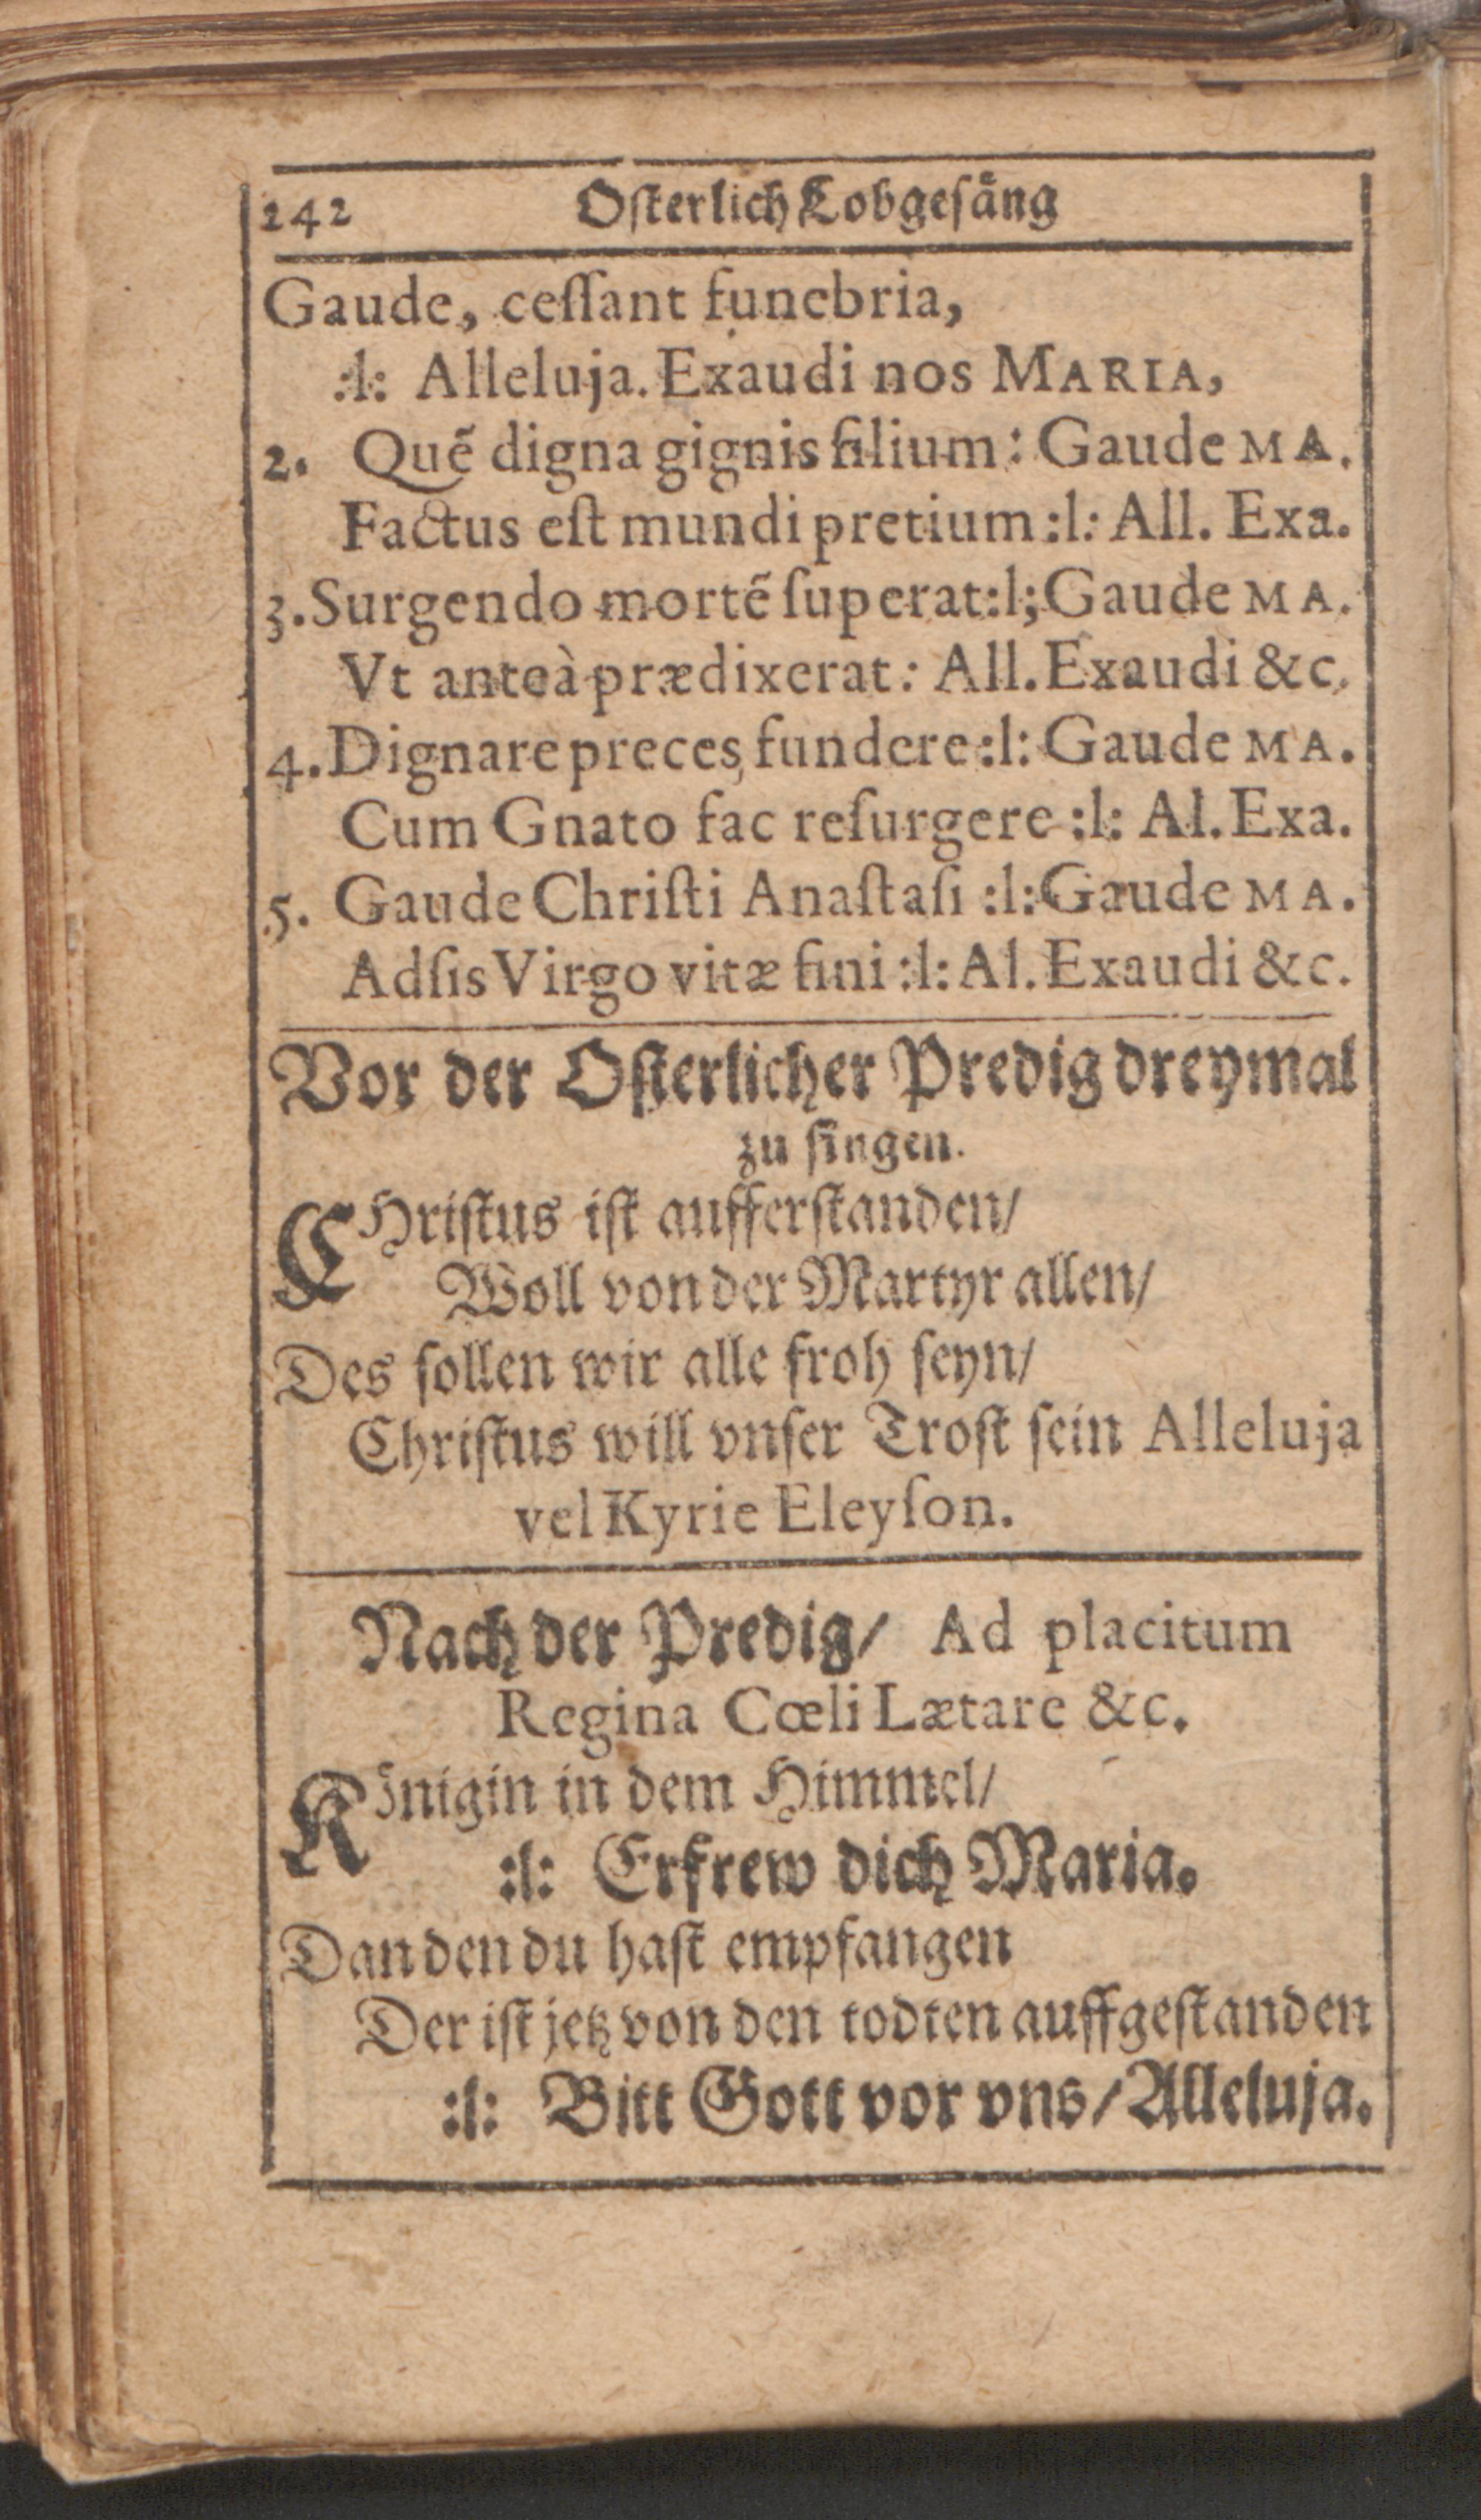 242 Oſterlich Lobgeſäng
Gaude, ceſſant funebria,
:l: Alleluja. Exaudi nos MARIA,
2. Quẽ digna gignis filium : Gaude MA.
Factus eſt mundi pretium :l: All. Exa.
3. Surgendo mortẽ ſuperat :l; Gaude MA.
Vt anteà prædixerat : All. Exaudi &c.
4. Dignare preces fundere :l: Gaude MA.
Cum Gnato fac reſurgere :l: Al. Exa.
5. Gaude Chriſti Anaſtaſi :l: Gaude MA.
Adſis Virgo vitæ fini :l: Al. Exaudi &c.
Vor der Oſterlicher Predig dreymal
zu ſingen.
CHriſtus iſt aufferſtanden/
Woll von der Martyr allen/
Des ſollen wir alle froh ſeyn/
Chriſtus will vnſer Troſt ſein Alleluja
vel Kyrie Eleyſon.
Nach der Predig/ Ad placitum
Regina Cœli Lætare &c.
Königin in dem Himmel/
:l: Erfrew dich Maria.
Dan den du haſt empfangen
Der iſt jetz von den todten auffgeſtanden
:l: Bitt Gott vor vns/ Alleluja.